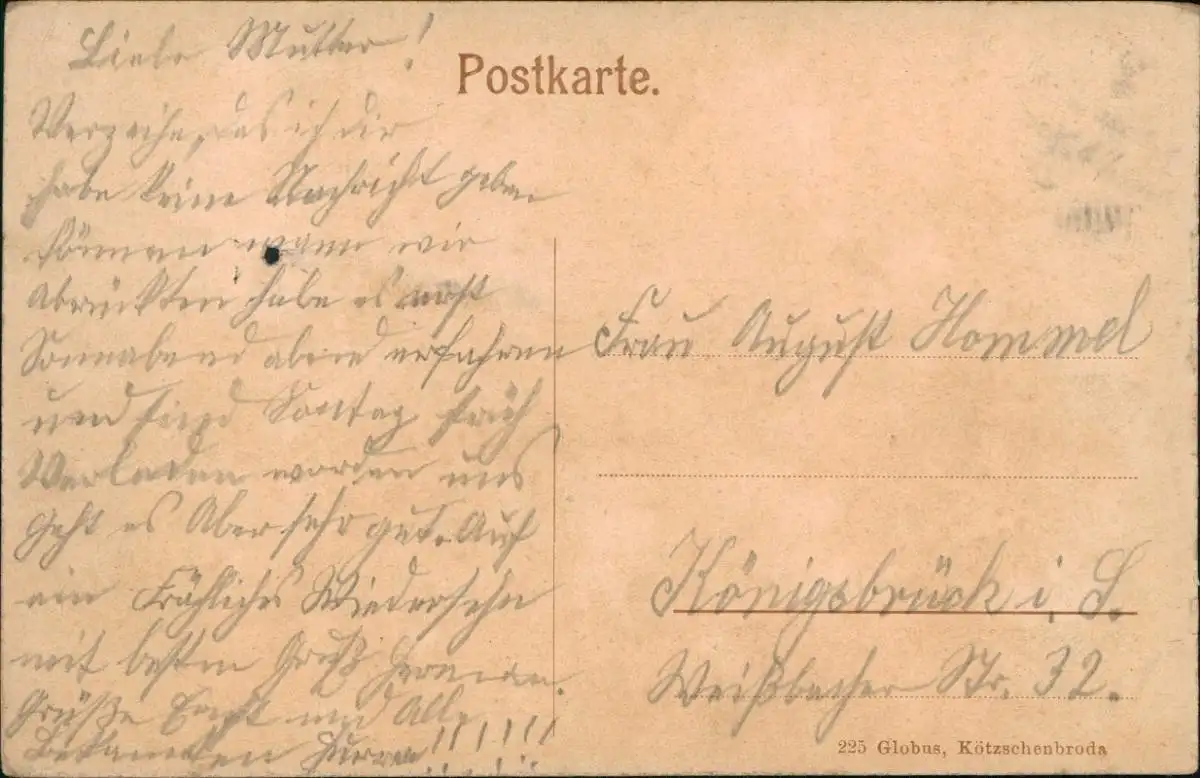 Postkarte.
Liebe Mutter!
Verzeihe, das ich dir
habe keine Nachricht geben
können wann wir
Abrückten habe es erst
Sonnabend abend erfahren
und sind Sontag früh
Verladen worden uns
geht es Aber sehr gut. Auf
ein Fröhliches Wiedersehn
mit besten Gruß Herman.
Grüße Ernst und Alle
Bekannten Hurra!!!!!!!
Frau August Hommel
Königsbrück i. S.
Weißbacher Str. 32.
225 Globus, Kötzschenbroda